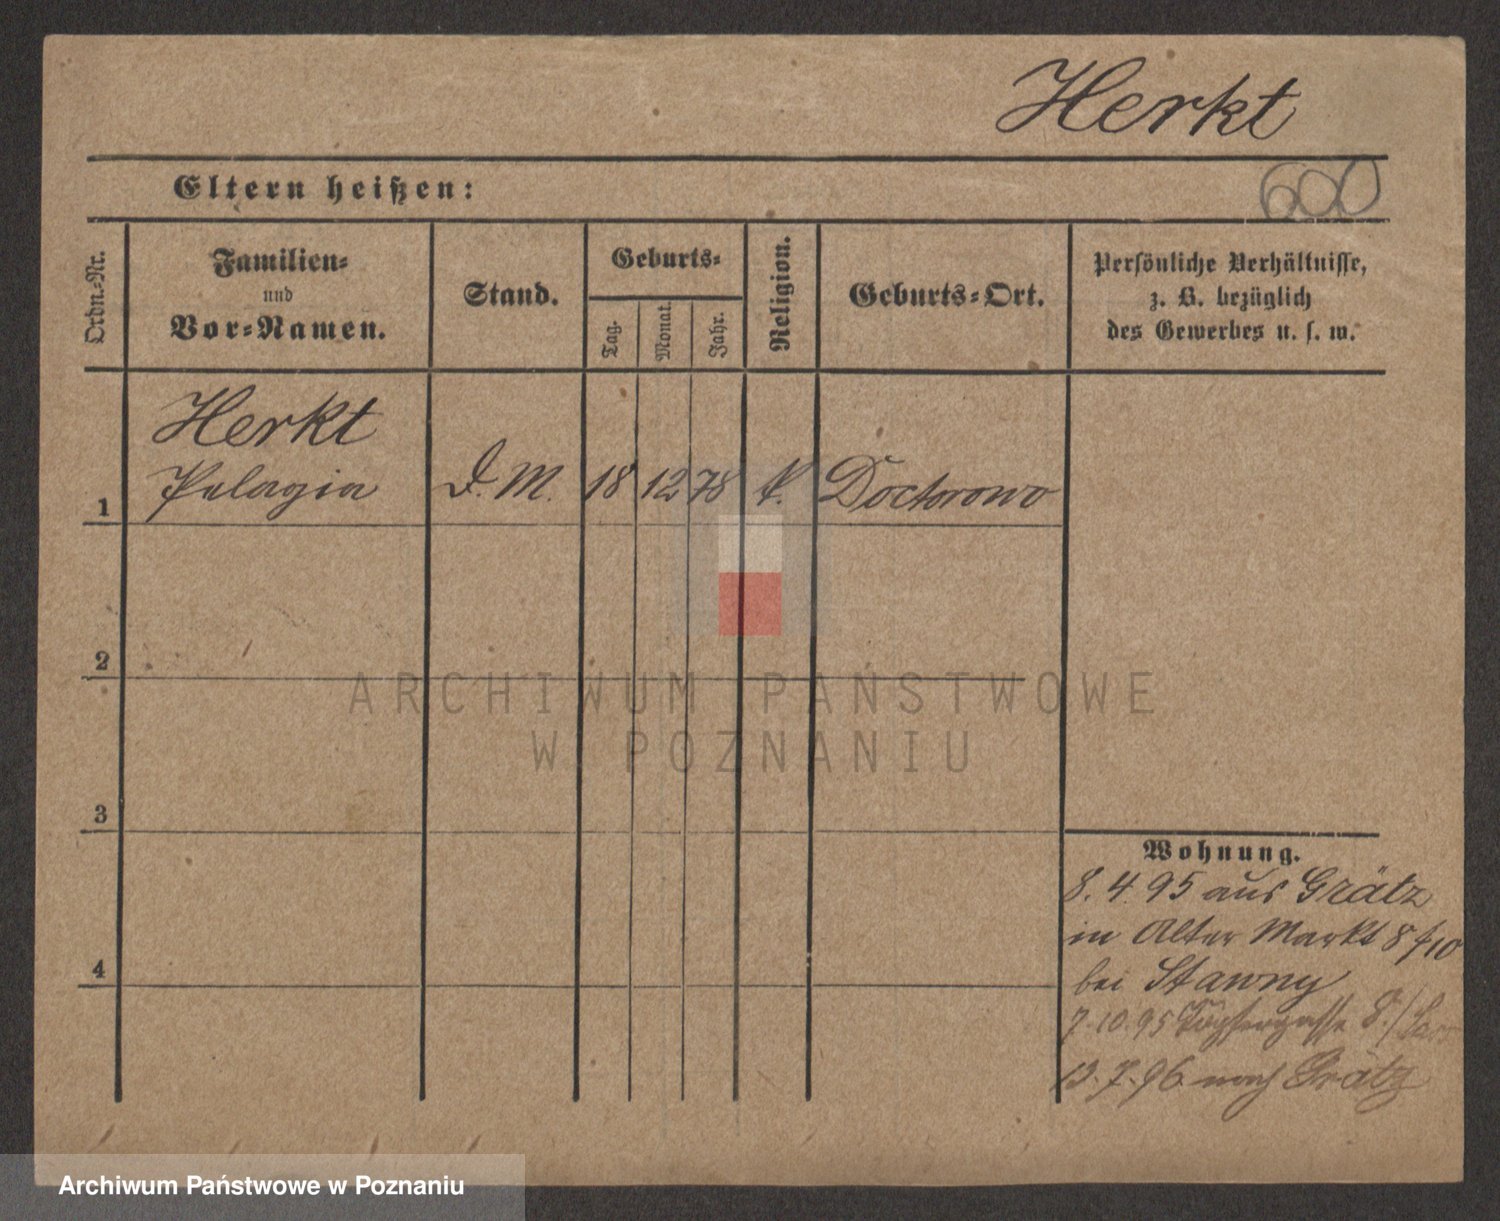 Herkt
Eltern heißen:
600
Ordn.-Nr.
Familien-
und
Vor-Namen.
Stand.
Geburts-
Tag.
Monat.
Jahr.
Religion.
Geburts-Ort.
Persönliche Verhältnisse,
z. B. bezüglich
des Gewerbes u. s. w.
Herkt
1 Pelagia D. M. 18 12 78 k. Doctorowo
2
3
4
Wohnung.
8. 4. 95 aus Grätz
in Alter Markt 8/10
bei Stawny
7. 10. 95 Töpfergasse 8./
13. 7. 96 nach Grätz
ARCHIWUM PAŃSTWOWE
W POZNANIU
Archiwum Państwowe w Poznaniu